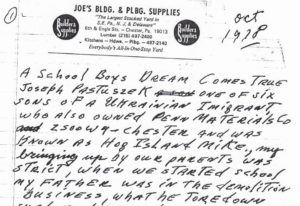 ①
JOE'S BLDG. & PLBG. SUPPLIES
"The Largest Stocked Yard in
S.E. Pa., N. J. & Delaware"
6th & Engle Sts., Chester, Pa. 19013
Lumber (215) 497-2400
Kitchens - Hdwe. - Plbg. - 497-2140
Everybody's All-In-One-Stop Yard
Builders
Supplies
Builders
Supplies
Oct
1978
A School Boys DREAM COMES TRUE
Joseph PASTUSZEK one of six
sons of a UKRAINIAN IMIGRANT
who also owned PENN MATERIALS Co
2500 W- CHESTER AND WAS
KNOWN AS HOG ISLAND MIKE, my
bringing up by our parents was
STRICT, WHEN WE STARTED School
my FATHER WAS IN THE demolition
Business, WHAT HE TORE DOWN